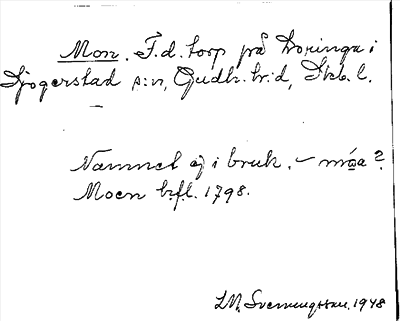 Mon. F.d. torp på Doringa i
Sjögerstad s:n, Gudh. hr:d, Skb. l.
Namnet ej i bruk. – måa?
Moen bfl. 1798.
L.M. Svenungsson. 1948